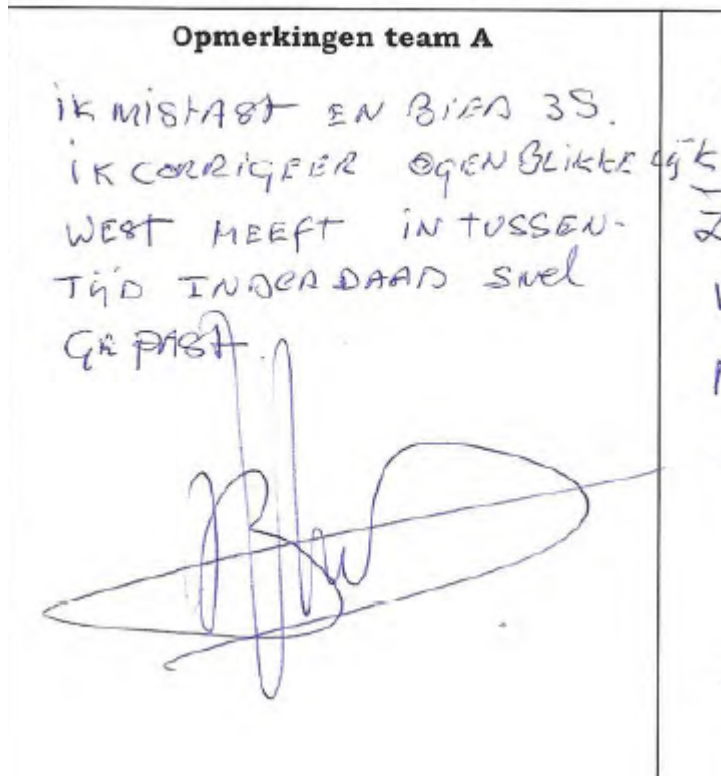 Opmerkingen team A
iK MISTAST EN BIED 3S.
iK CORRIGEER OGENBLIKKELIJK
WEST HEEFT IN TUSSEN-
TIJD INDERDAAD SNEL
GEPAST.